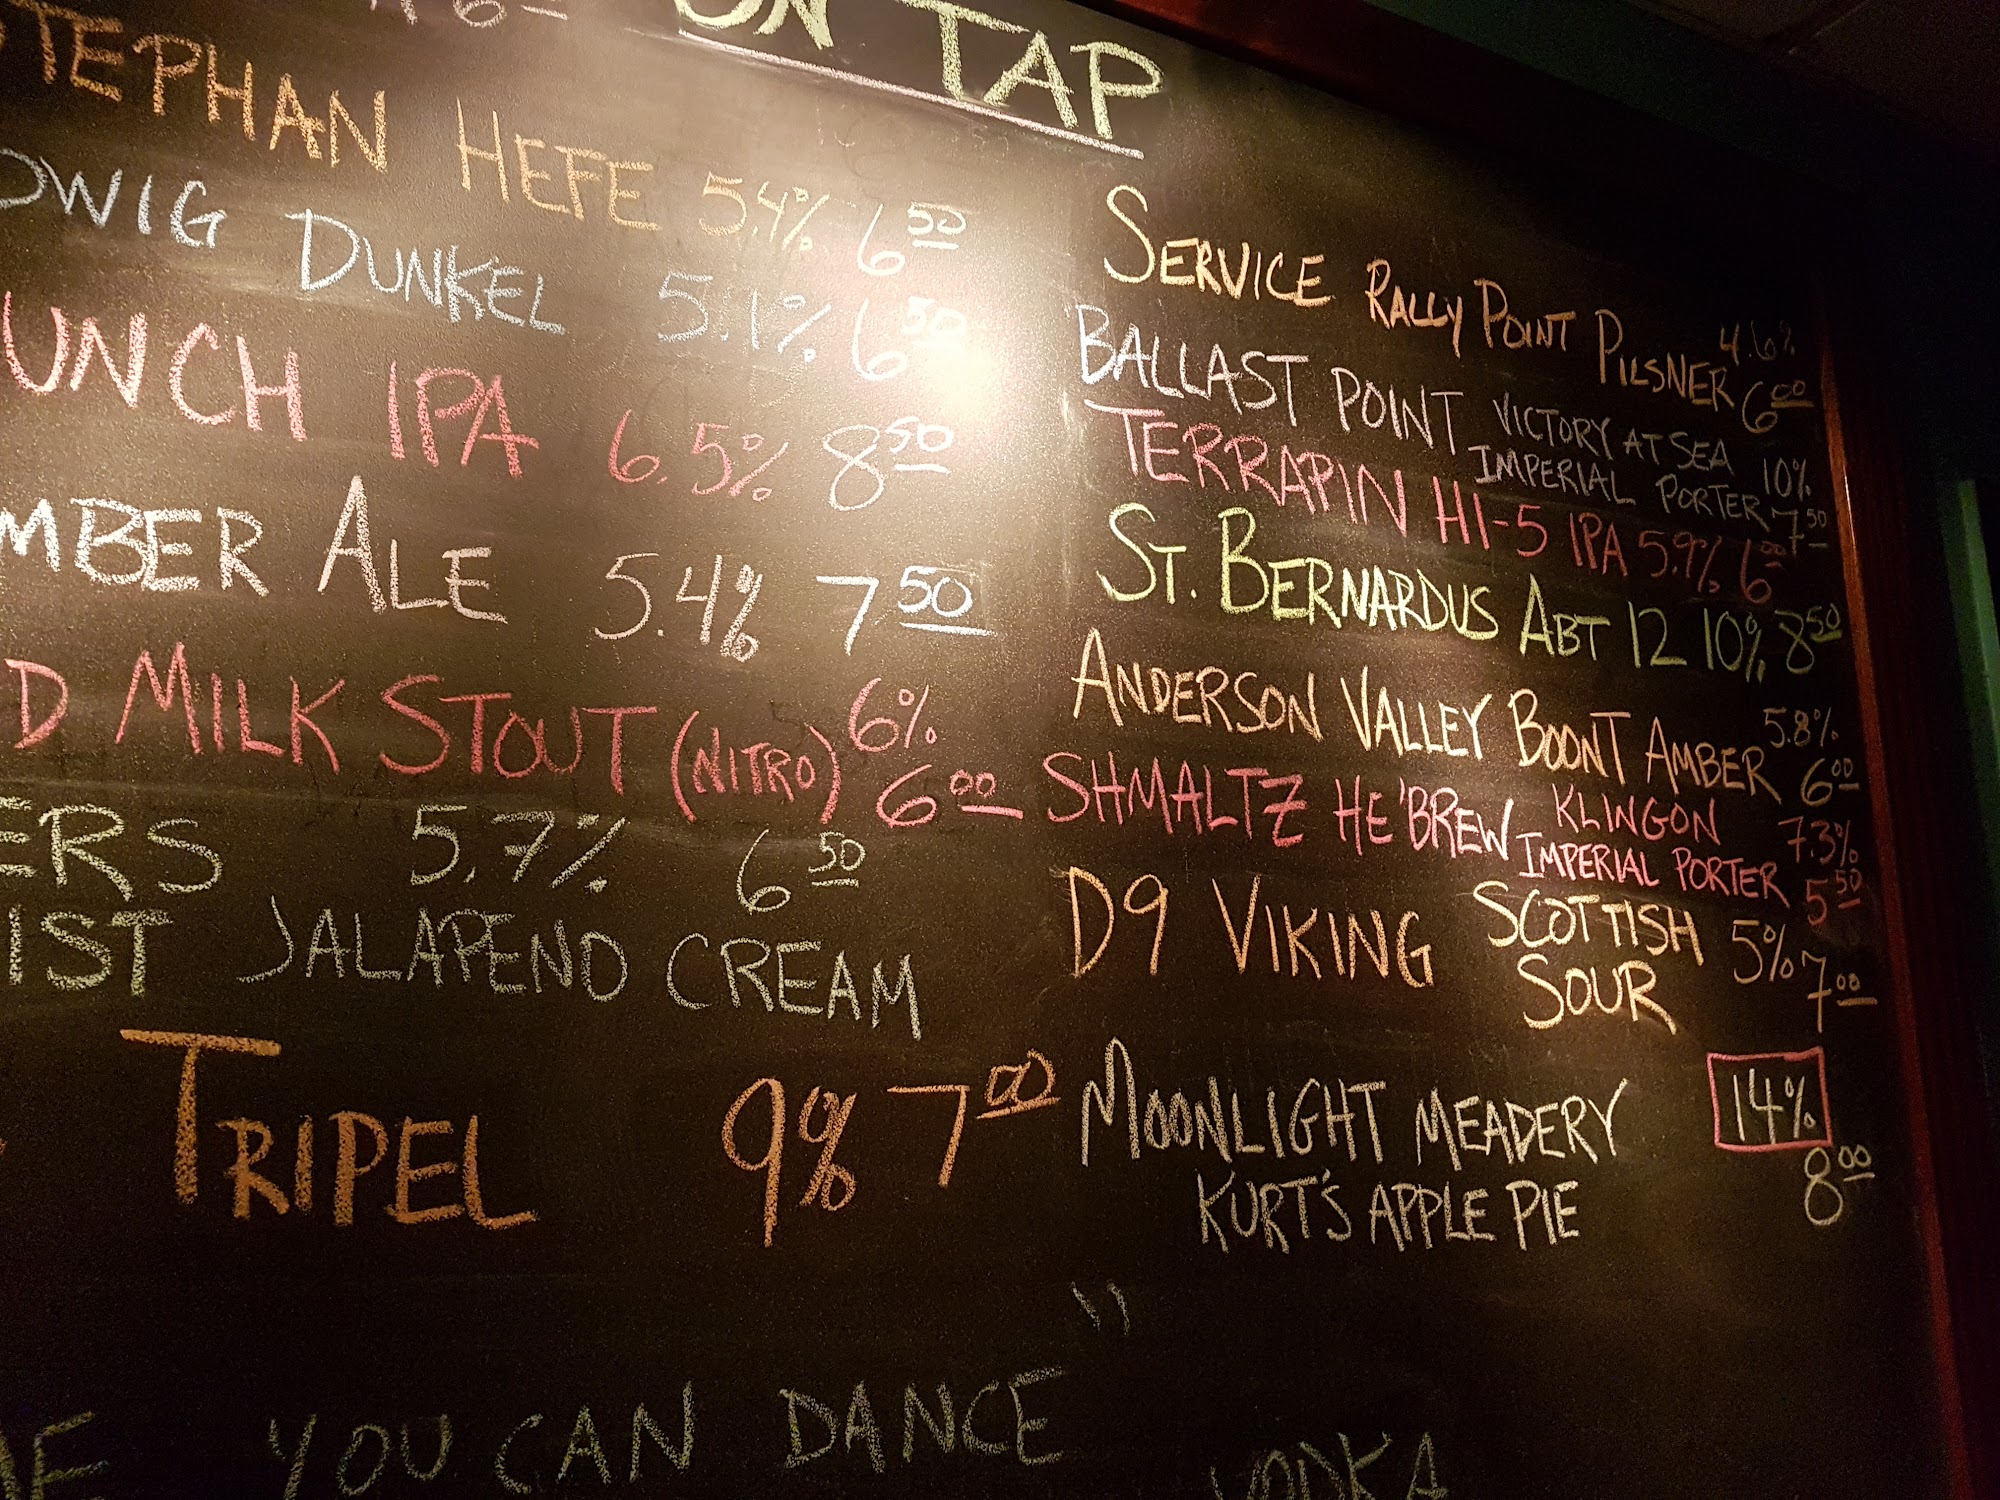 6 00
ON TAP
STEPHAN HEFE 5.4% 6 50
DWIG DUNKEL 5.1% 6 50
UNCH IPA 6.5% 8 50
MBER ALE 5.4% 7 50
D MILK STOUT (NITRO) 6% 6 00
ERS 5.7% 6 50
IST JALAPENO CREAM
TRIPEL 9% 7 00
SERVICE RALLY POINT PILSNER 4.6% 6 00
BALLAST POINT VICTORY AT SEA IMPERIAL PORTER 10% 7 50
TERRAPIN HI-5 IPA 5.9% 6 00
ST. BERNARDUS ABT 12 10% 8 50
ANDERSON VALLEY BOONT AMBER 5.8% 6 00
SHMALTZ HE'BREW KLINGON IMPERIAL PORTER 7.3% 5 50
D9 VIKING SCOTTISH SOUR 5% 7 00
MOONLIGHT MEADERY 14%
KURT'S APPLE PIE 8 00
"
YOU CAN DANCE
VODKA